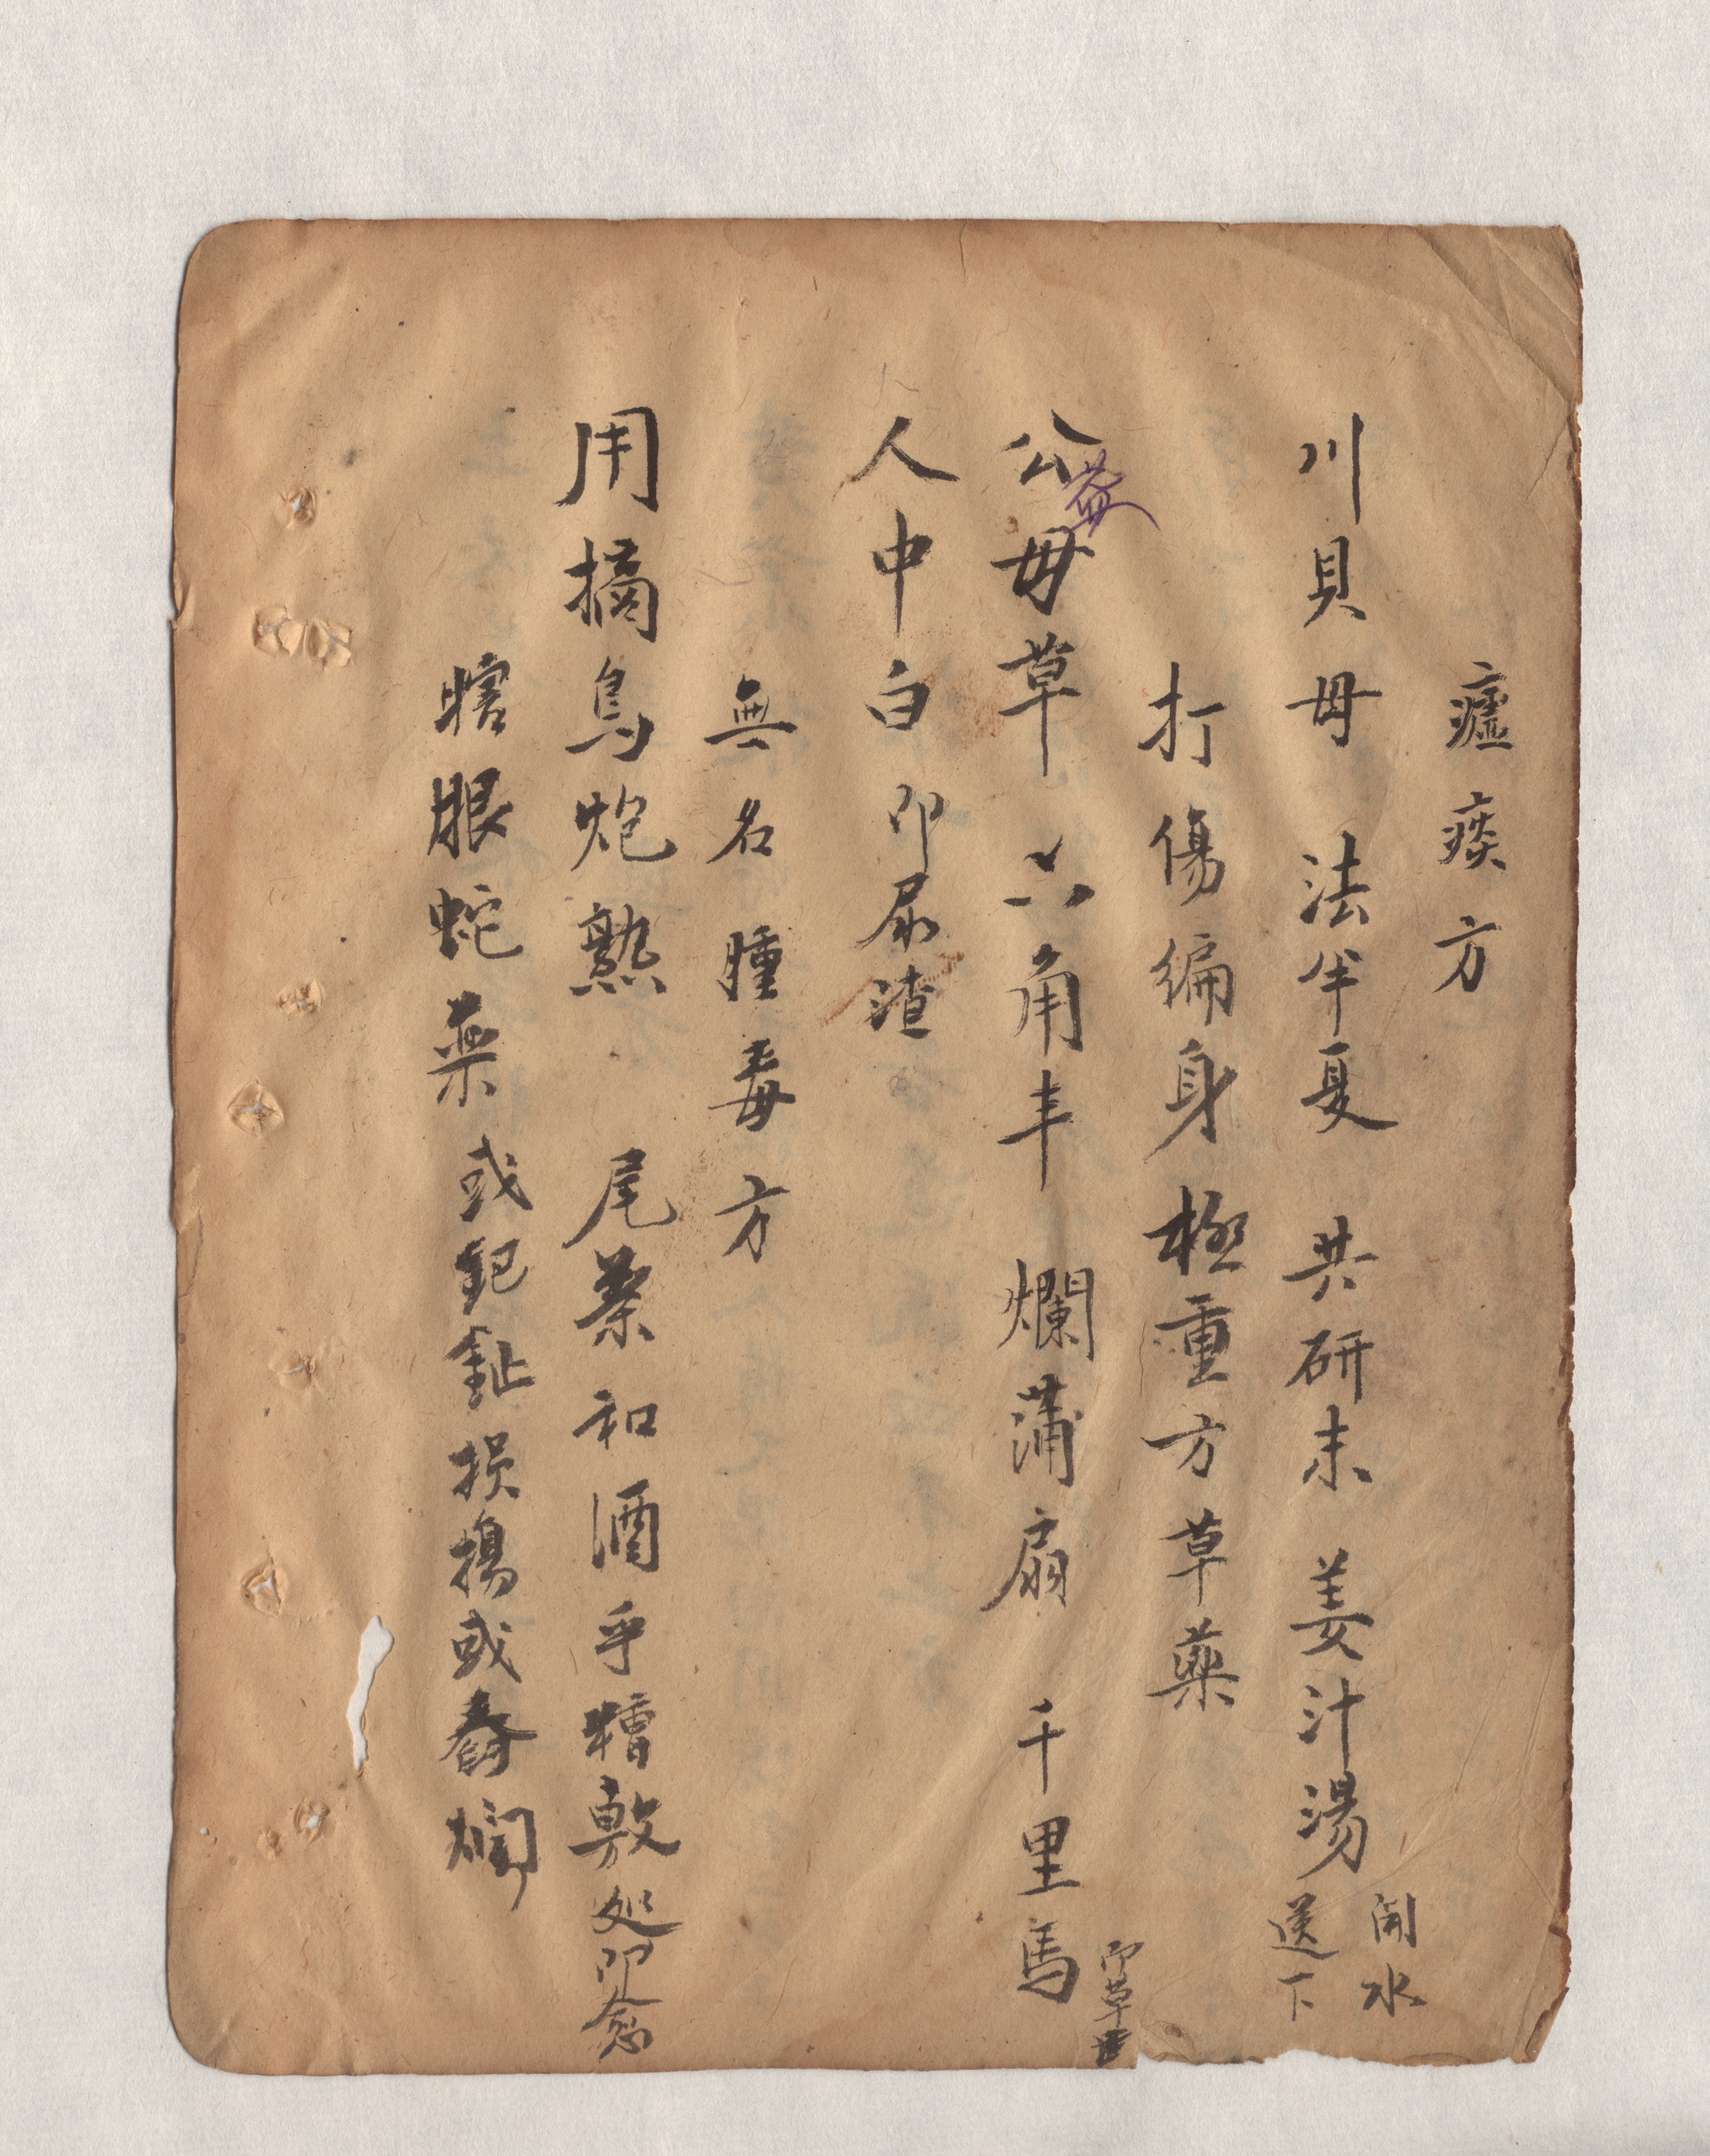 瘧痰方
川貝母 法半夏 共研末 姜汁湯 開水送下
打傷编身極重方草藥
公益毋草 六角丰 爛蒲扇 千里馬 即草
人中白 即尿渣
無名腫毒方
用摘鳥炮熟 尾蔡和酒乎糟敷处即愈
瞎眼蛇藥或鈀鉏損搗或舂爛